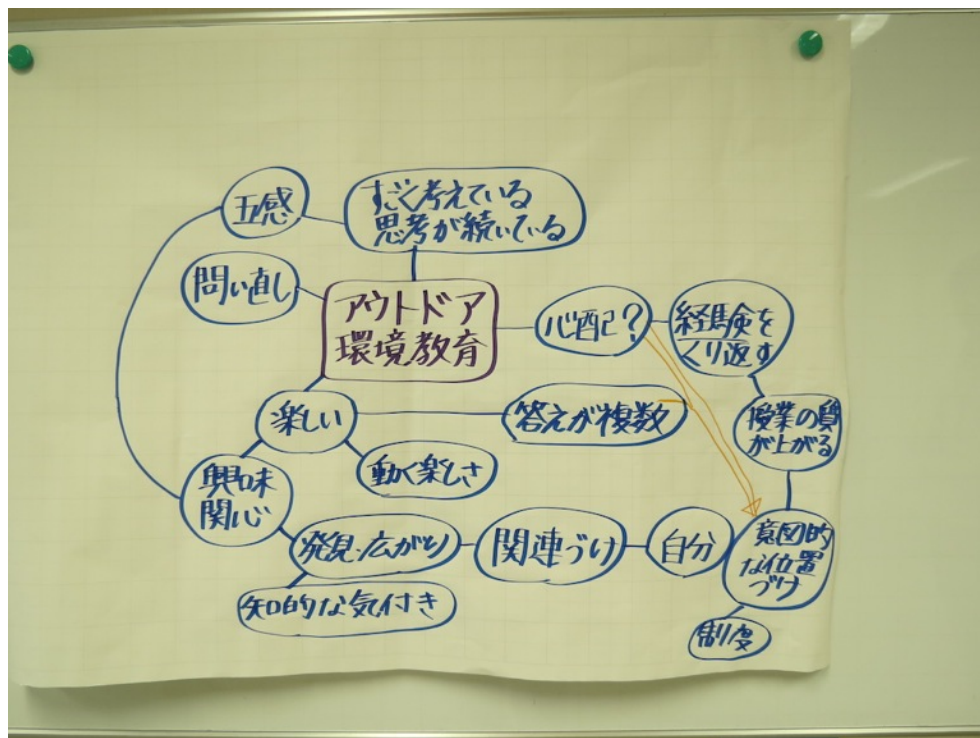 五感
すごく考えている
思考が続いている
問い直し
アウトドア
環境教育
心配?
経験を
くり返す
楽しい
答えが複数
授業の質
が上がる
動く楽しさ
興味
関心
発見・広がり
関連づけ
自分
意図的
な位置
づけ
知的な気付き
制度